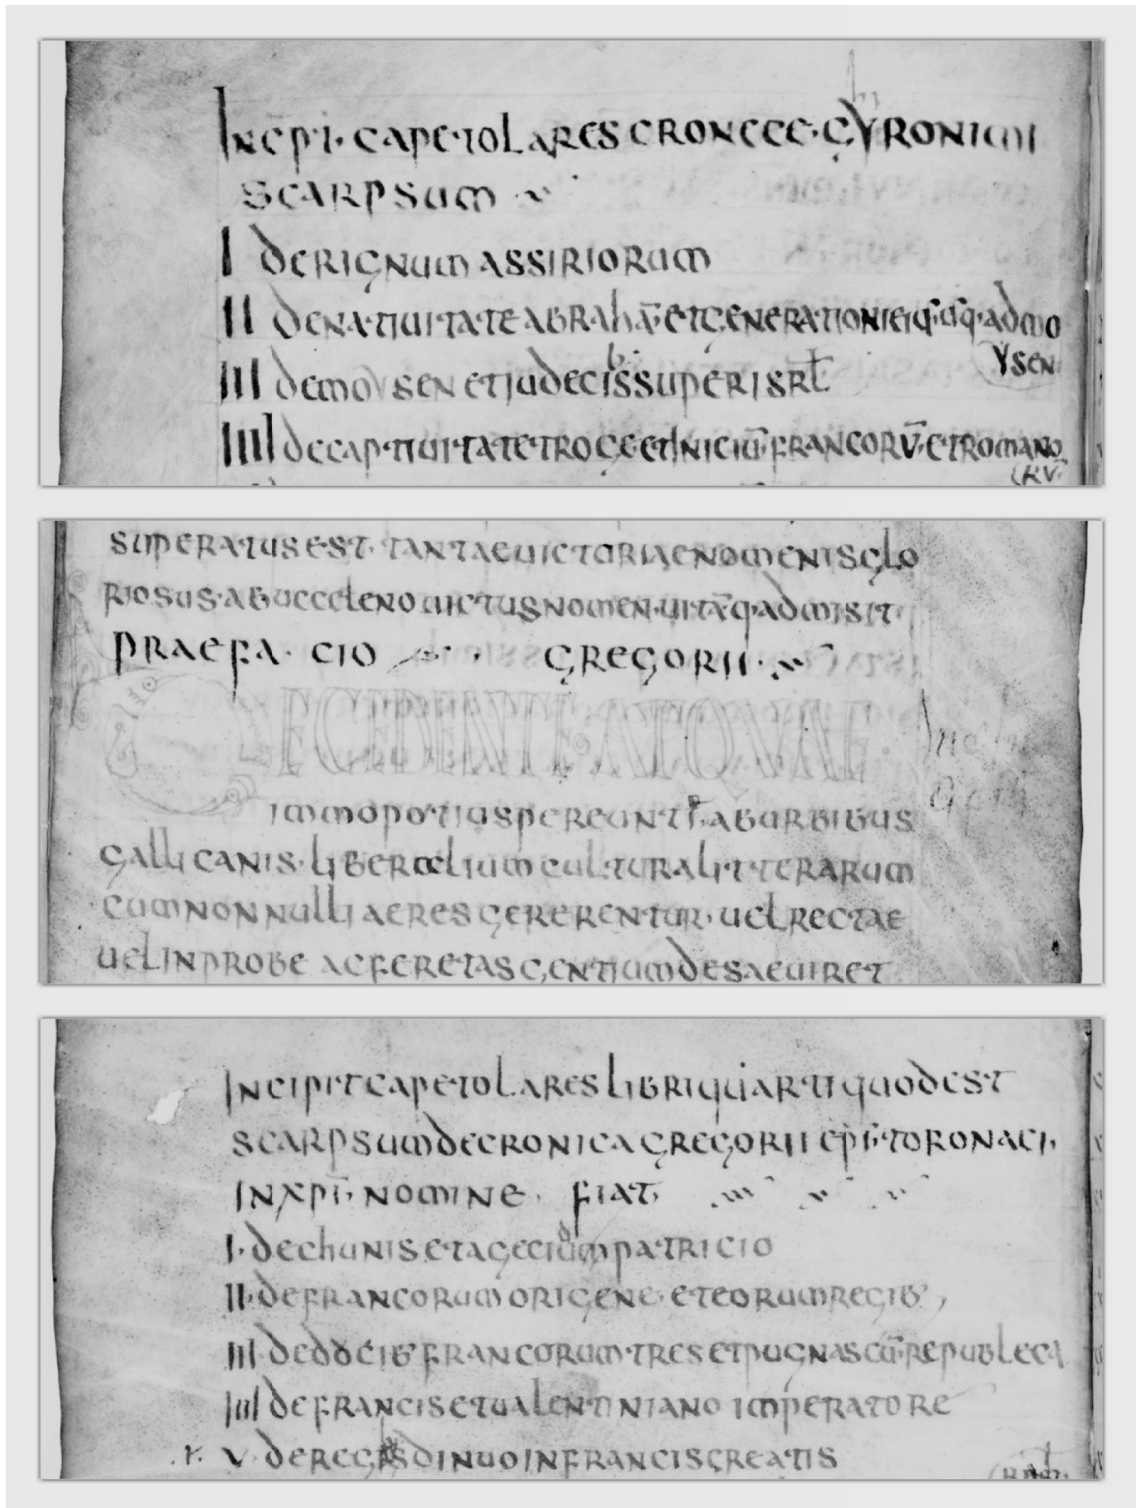 Incpt· capetolares cronece· gyronimi
scarpsum
I de rignum assiriorum
II de natiuitate abrahā et generationi eiq· usq· ad mo
ysen
III de moysen et judecibs super isrl
IIII de captiuitate troge et iniciū francorū· et romano
rū
superatus est· tantae uicturiae nomenis glo
riosus· a bucceleno uictus nomen· uitāq· admisit
praefa· cio gregorii·
DECEDENTE ATQVAE
immo potius pereunte ab urbibus
gallicanis· liberalium cultura litterarum
cum non nulli aeres gererentur· uel rectae
uel inprobe ac feretas gentium desaeuiret
Incipit capetolares libri quarti quod est
scarpsum de cronica gregorii epī toronaci·
in xpī nomine· fiat
I· de chunis et agecium patricio
II· de francorum origene· et eorum regib·
III de docib· francorum tres et pugnas cū republeca
IIII de francis et ualentiniano imperatore
V de regis dinuo in francis creatis